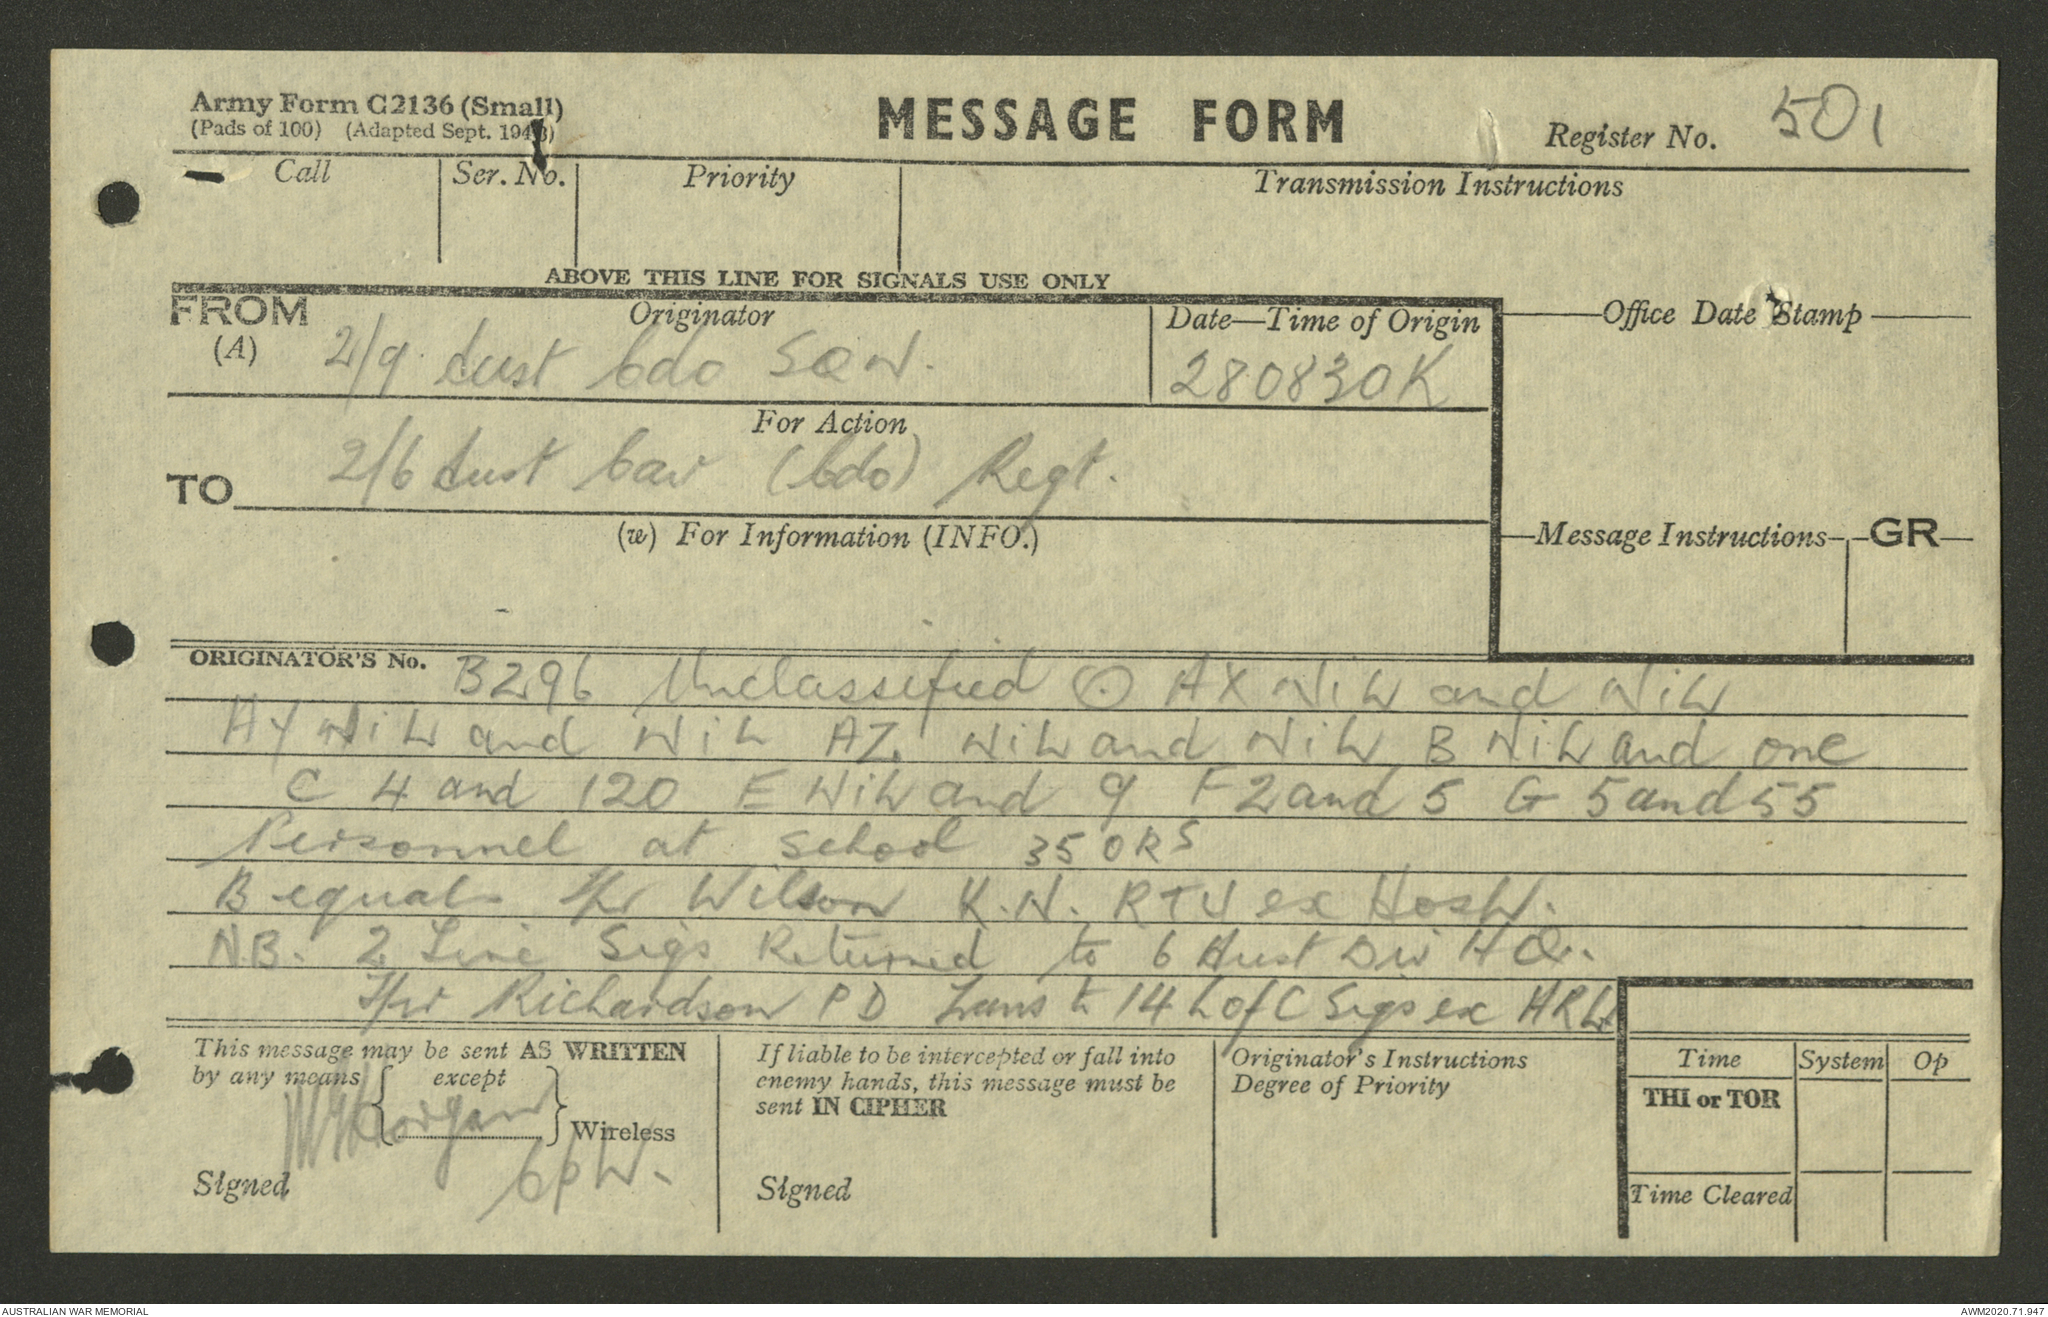 Army Form C2136 (Small)
(Pads of 100) (Adapted Sept. 194
MESSAGE FORM
Register No. 501
Call
Ser. No.
Priority
Transmission Instructions
ABOVE THIS LINE FOR SIGNALS USE ONLY
FROM
(A)
Originator
2/9 Aust Cdo SQN.
Date—Time of Origin
280830K
Office Date Stamp
For Action
TO
2/6 Aust Cav (Cdo) Regt.
(w) For Information (INFO.)
Message Instructions
GR
ORIGINATOR'S No. B296 Unclassified ⊙ AX NiL and NiL
AY NiL and NiL AZ NiL and NiL B NiL and one
C 4 and 120 E NiL and 9 F 2 and 5 G 5 and 55
Personnel at school 35 ORS
B equals Tpr Wilson K.N. RTU ex Hosp.
N.B. 2 Line Sigs Returned to 6 Aust Div HQ.
Tpr Richardson P D Trans to 14 L of C Sigs ex
This message may be sent AS WRITTEN
by any means except
Wireless
Signed
If liable to be intercepted or fall into
enemy hands, this message must be
sent IN CIPHER
Signed
Originator's Instructions
Degree of Priority
Time
System
Op
THI or TOR
Time Cleared
AUSTRALIAN WAR MEMORIAL
AWM2020.71.947